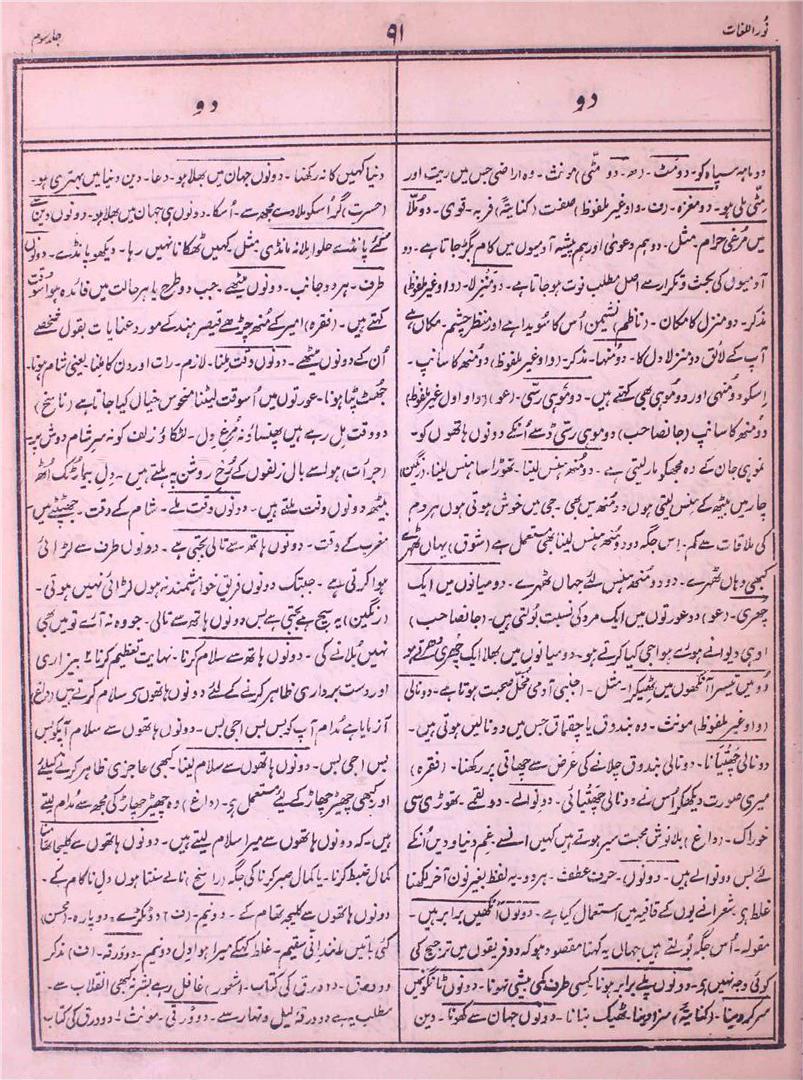 نُور اللغات
۹۱
جلد سوم
دو
دو
دو ماہہ سپاہ کو۔ دومَٹ۔ (ھ۔ دو مٹّی) مونث۔ وہ اراضی جس میں ریت اور
مٹّی ملی ہو۔ دو مغزہ۔ (ف۔ واو غیر ملفوظ) صفت (کنایۃً) فربہ۔ قوی۔ دو مُلّا
میں مرغی حرام۔ مثل۔ دو ہم دعویٰ اور ہم پیشہ آدمیوں میں کام بگڑ جاتا ہے۔ دو
آدمیوں کی بحث و تکرار سے اصل مطلب فوت ہو جاتا ہے۔ دو مَنزِلا۔ (واو غیر ملفوظ)
مذکر۔ دو منزل کا مکان۔ (ناظم) نشیمن اُس کا سُویدا ہے اور منظر چشم۔ مکاں ہے
آپ کے لائق دو منزلا دل کا۔ دومُنہا۔ مذکر۔ (واو غیر ملفوظ) دو مُنھ کا سانپ۔
اِسکو دو مُنہی اور دو مُوہی بھی کہتے ہیں۔ دومُوہی رسّی۔ (عو) (واو اول غیر ملفوظ)
دو مُنھ کا سانپ (جانصاحب) دو موہی رسّی ڈسے اُنکے دونوں ہاتھوں کو۔
نموہی جان کے وہ مجھکو مار لیتی ہے۔ دو مُنھ ہنس لینا۔ تھوڑا سا ہنس لینا۔ (رنگین)
چار میں بیٹھ کے ہنس لیتی ہوں دو مُنھ میں بھی۔ جی میں خوش ہوتی ہوں ہر دم
کی ملاقات سے کم۔ اِس جگہ دو دو مُنھ ہنس لینا بھی مستعمل ہے (شوق) یہاں ٹھہرے
کبھی وہاں ٹھہرے۔ دو دو مُنھ ہنس لئے جہاں ٹھہرے۔ دو میانوں میں ایک
چھری۔ (عو) دو عورتوں میں ایک مرد کی نسبت بولتی ہیں۔ (جانصاحب)
اوہی دیوانے ہوئے ہو اجی کیا کرتے ہو۔ دو میانوں میں بھلا ایک چھری دھرتے ہو
دو میں تیسرا آنکھوں میں ٹھیکرا۔ مثل۔ اجنبی آدمی مخل صحبت ہوتا ہے۔ دونالی
(واو غیر ملفوظ) مونث۔ وہ بندوق یا چقماق جس میں دو نالیں ہوتی ہیں۔
دونالی چَھتیانا۔ دونالی بندوق چلانے کی غرض سے چھاتی پر رکھنا۔ (فقرہ)
میری صورت دیکھکر اُس نے دونالی چھتیائی۔ دونوالے۔ دو لقمے۔ تھوڑی سی
خوراک۔ (داغ) بلا نوش محبت سیر ہوتے ہیں کہیں انسے۔ غم دنیا و دیں اُنکے
لئے بس دو نوالے ہیں۔ دونوں)۔ حرف عطف۔ ہر دو۔ یہ لفظ بغیر نون آخر لکھنا
غلط ہی۔ شعرا نے یوں کے قافیہ میں استعمال کیا ہے۔ دونوں آنکھیں برابر ہیں۔
مقولہ۔ اُس جگہ بولتے ہیں جہاں یہ کہنا مقصود ہو کہ دو فریقوں میں ترجیح کی
کوئی وجہ نہیں ہی۔ دونوں پلے برابر ہونا۔ کسی طرف کمی بیشی نہونا۔ دونوں ٹانگوں میں
سر کر دینا۔ (کنایۃً) سزا دینا۔ ٹھیک بنانا۔ دونوں جہان سے کھونا۔ دین
دنیا کہیں کا نہ رکھنا۔ دونوں جہان میں بھلا ہو۔ دعا۔ دین دنیا میں بہتری ہو۔
(حسرت) گر اُسکو ملا دے مجھ سے۔ اُسکا۔ دونوں ہی جہان میں بھلا ہو۔ دونوں دین سے
گئے پانڈے حلوا ملا نہ مانڈے۔ مثل۔ کہیں ٹھکانا نہیں رہا۔ دیکھو پانڈے۔ دونوں
طرف۔ ہر دو جانب۔ دونوں میٹھے۔ جب دو طرح یا ہر حالت میں فائدہ ہو اُسوقت
کہتے ہیں۔ (فقرہ) امیر کے مُنھ چڑھے قیصر ہند کے مورد عنایات بقول شخصے
اُن کے دونوں میٹھے۔ دونوں وقت ملنا۔ لازم۔ رات اور دن کا ملنا یعنی شام ہونا۔
جُھٹ پُٹا ہونا۔ عورتوں میں اُسوقت لیٹنا منحوس خیال کیا جاتا ہے (ناسخ)
دو وقت مل رہے ہیں پھنساؤ نہ مُرغ دل۔ لٹکاؤ زلف کو نہ سرِ شام دوش پہ۔
(جرأت) ہوا سے بال زلفوں کے رُخ روشن پہ ہلتے ہیں۔ دلِ بیمار ٹک اُٹھ
بیٹھ دونوں وقت ملتے ہیں۔ دونوں وقت ملے۔ شام کے وقت۔ جھٹپٹے میں۔
مغرب کے وقت۔ دونوں ہاتھ سے تالی بجتی ہے۔ دونوں طرف سے لڑائی
ہوا کرتی ہے۔ جبتک دونوں فریق خواہشمند نہ ہوں لڑائی نہیں ہوتی۔
(رنگین) یہ سچ ہے بجتی ہے بس دونوں ہاتھ سے تالی۔ جو وہ نہ آئے تو میں بھی
نہیں بُلانے کی۔ دونوں ہاتھ سے سلام کرنا۔ نہایت تعظیم کرنا ۲ بیزاری
اور دست برداری ظاہر کرنے کے لئے دونوں ہاتھوں سے سلام کرتے ہیں (داغ)
آزمایا ہے مُدام آپ کو بس بس اجی بس۔ دونوں ہاتھوں سے سلام آپکو بس
بس اجی بس۔ دونوں ہاتھوں سے سلام لینا۔ کبھی عاجزی ظاہر کرنے کیلئے
اور کبھی چھیڑ چھاڑ کے لیئے مستعمل ہی۔ (داغ) وہ چھیڑ چھاڑ کی مجھ سے مُدام لیتے
ہیں۔ کہ دونوں ہاتھوں سے میرا سلام لیتے ہیں۔ دونوں ہاتھوں سے کلیجا تھامنا
کمال ضبط کرنا۔ یا کمال صبر کرنا کی جگہ (راسخ) نالے سنتا ہوں دلِ ناکام کے۔
دونوں ہاتھوں سے کلیجہ تھام کے۔ دو نیم۔ (ف) دو ٹکڑے۔ دو پارہ۔ (محسن)
گئی باتیں سقیم۔ غلط کہکے میرا ہو اول دو نیم۔ دو وَرقہ۔ (ف) مذکر
دو ورق۔ دو ورق کی کتاب۔ (شعور) غافل رہے بشر نہ کبھی انقلاب سے۔
مطلب یہ ہے دو ورقۂ لیل و نہار سے۔ دو وَرقی۔ مونث۔ ۱ دو ورق کی کتاب